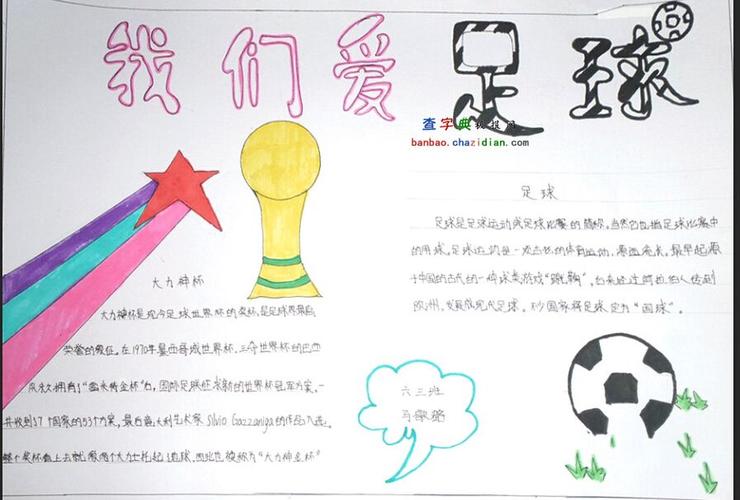 我们爱足球
查字典板报网
banbao.chazidian.com
足球
足球是足球运动或足球比赛的简称,当然它也指足球比赛中
的用球。足球运动是一项古老的体育运动,源远流长。最早起源
于中国的古代的一种球类游戏“蹴鞠”,后来经过阿拉伯人传到
欧洲,发展成现代足球。不少国家将足球定为“国球”。
大力神杯
大力神杯是现今足球世界杯的奖杯,是足球界最高
荣誉的象征。在1970年墨西哥城世界杯,三夺世界杯的巴西
永久拥有了“雷米特金杯”后,国际足联征求新的世界杯冠军方案,一
共收到17个国家的53个方案,最后意大利艺术家 Silvio Gazzaniga的作品入选。
整个奖杯看上去就像两个大力士托起了地球,因此也被称为“大力神金杯”
六三班